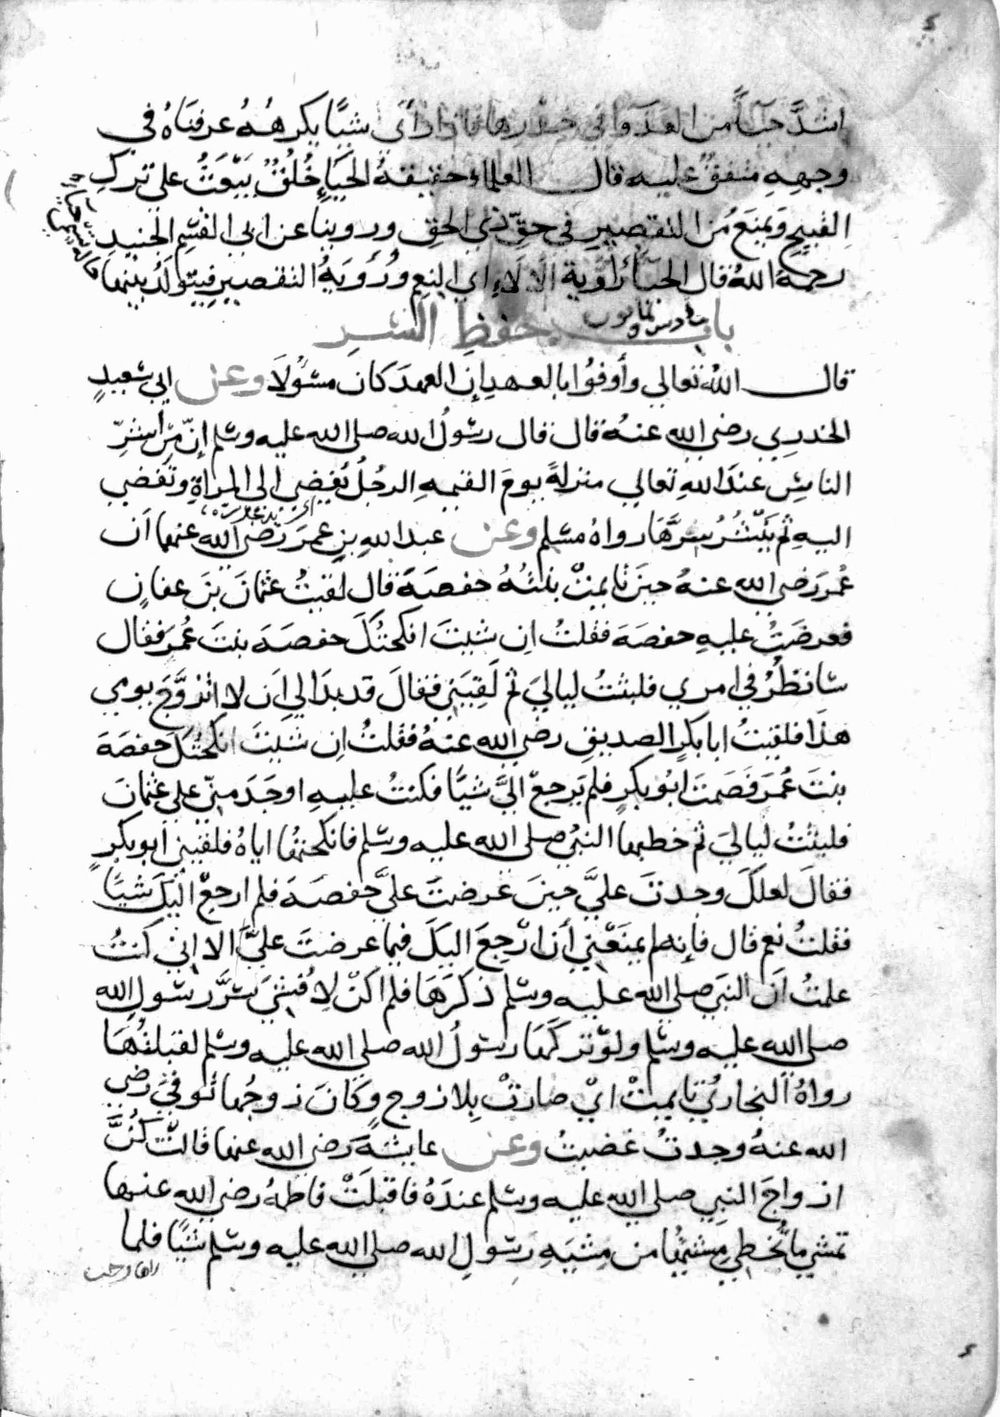 اشدَّ حيآءً من العذرآء في خدرها فاذا رأى شيئًا يكرهُهُ عرفناهُ في
وجهِهِ متفقٌ عليه قال العلماء حقيقةُ الحيَاءِ خُلُقٌ يَبْعَثُ على تركِ
القبيحِ ويمنعُ من التقصيرِ في حقِّ ذي الحق وروينا عن ابي القسم الجنيدِ
رحمهُ اللهُ قال الحيآءُ رُؤية الآلآءِ اي النِعمِ ورُؤيةُ التقصيرِ فيتولدُ بينهما
باب حفظِ السّرِ
قال اللهُ تعالى وأوفُوا بالعهدِ إنَّ العهدَ كان مسْؤلًا وعن ابي سَعيدٍ
الخدري رضي الله عنهُ قال قال رسُولُ الله صلى الله عليه وسلم إنَّ مِنْ أَشَرِّ
الناسِ عندَ اللهِ تعالى منزلةً يومَ القيمةِ الرجُلُ يُفضي الى المرأةِ وتُفضي
اليهِ ثم يَنشُرُ سِرَّهَا رواهُ مسْلم وعن عبد اللهِ بنِ عمرَ رضي الله عنهما اَن
عُمرَ رضي الله عنهُ حينَ تأيمتْ بنتُهُ حفصَةَ قال لقيتُ عثمَانَ بنَ عفانٍ
فعرضتُ عليهِ حفصَةَ فقلتُ ان شيتَ انكحتُكَ حفصَةَ بنتَ عُمرَ فقال
سَانظُرُ في امري فلبثتُ لياليَ ثم لَقِيَني فقالَ قد بدَا لي اَن لا اتزوَّجَ يومي
هذَا فلقيتُ ابا بكرٍ الصديق رضي الله عنهُ فقلتُ اِن شيتَ انكحتُكَ حفصَةَ
بنتَ عُمَرَ فَصَمتَ ابُو بكرٍ فلم يَرجعْ اليَّ شيًا فكنتُ عليهِ اوجَدَ منّي على عُثمَانَ
فلبثتُ لياليَ ثم خطبها النبيُ صلى الله عليه وسَلم فانكحتُها اياهُ فلقيني ابو بكرٍ
فقالَ لعلكَ وجدتَ عليَّ حينَ عَرضتَ عليَّ حفصَةَ فلم ارجعْ اليكَ شيًا
فقلتُ نعم قال فإنه لم يمنَعْني أن ارْجعَ اليكَ فيما عرضتَ عليَّ الا اني كنتُ
علمتُ اَن النبيَ صلى الله عليه وسلم ذكرَهَا فلم اكنْ لاُفشيَ سرَّ رسُولِ الله
صلى الله عليه وسلم ولو تركَهَا رسُولُ الله صلى الله عليه وسلم لقبلتُهَا
رواهُ البخاريُ تايمتْ ايْ صَارتْ بِلا زوجٍ وكانَ زوجُها تُوفيَ رضي
الله عنهُ وجدتَ غضبتَ وعن عايشةَ رضي الله عنها قالتْ كُنَّ
ازواجَ النبي صلى الله عليه وسلم عندَهُ فاقبلَتْ فاطمةُ رضي الله عنها
تمشي ما تُخطي مِشيتُها من مِشيَةِ رسُولِ الله صلى الله عليه وسلم شيًا فلما
راها رحب